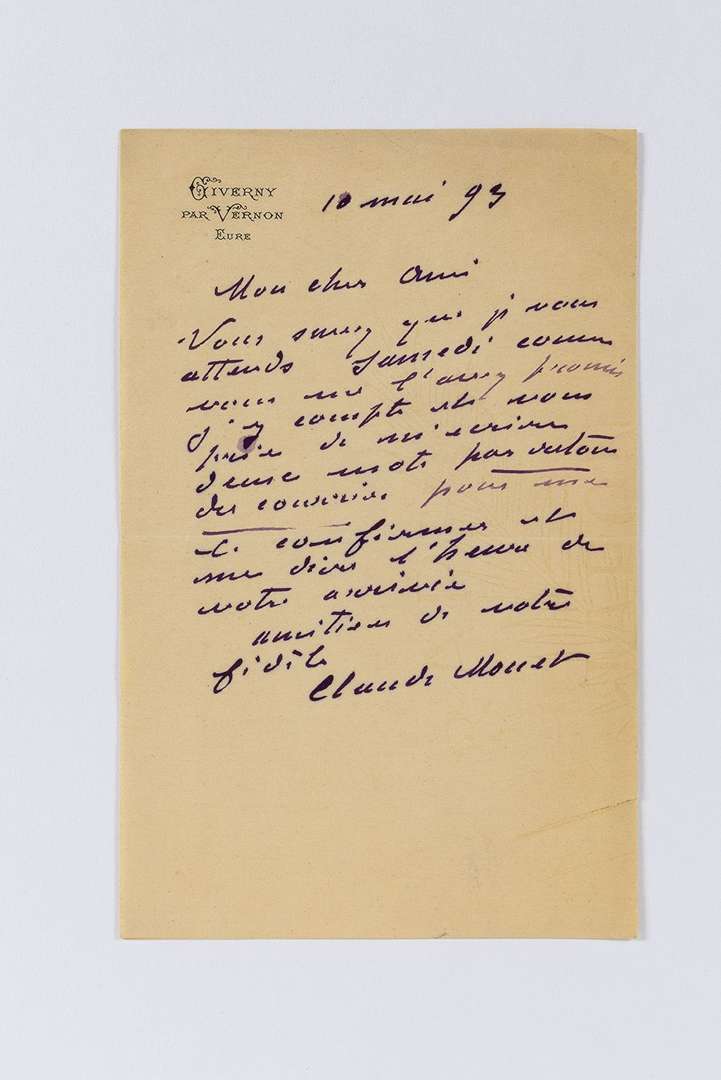 GIVERNY
PAR VERNON
EURE
10 mai 93
Mon cher ami
Vous savez que je vous
attends Samedi comme
vous me l'avez promis
j'y compte et vous
prie de m'écrire
deux mots par retour
du courrier pour me
le confirmer et
me dire l'heure de
votre arrivée
amitiés de votre
fidèle
Claude Monet